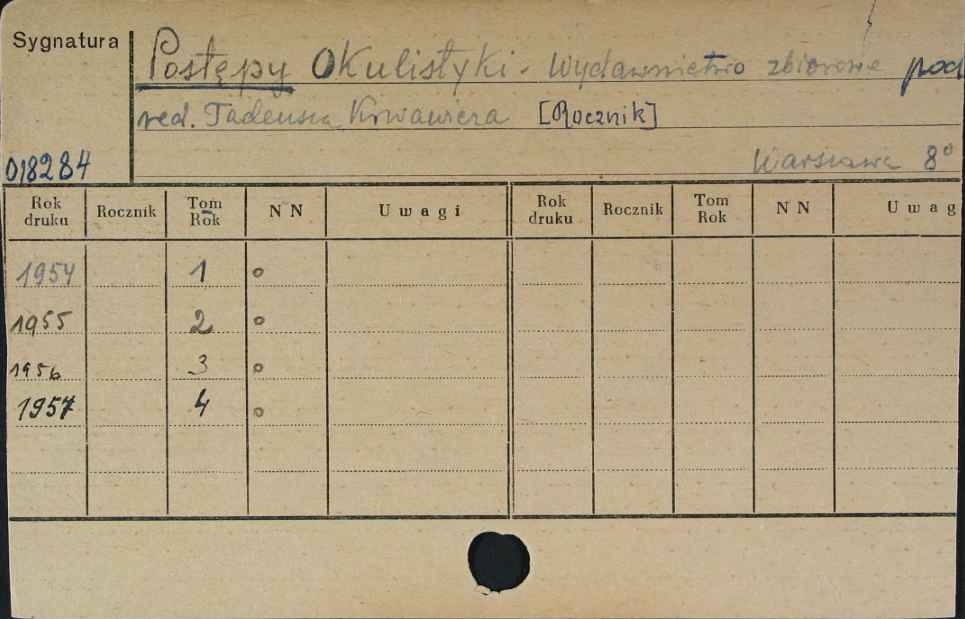 Sygnatura
Postępy Okulistyki - Wydawnictwo zbiorowe pod
red. Tadeusza Krwawicza [Rocznik]
018284
Warszawa 8°
Rok druku Rocznik Tom Rok NN Uwagi Rok druku Rocznik Tom Rok NN Uwag
1954 1 o
1955 2 o
1956 3 o
1957 4 o